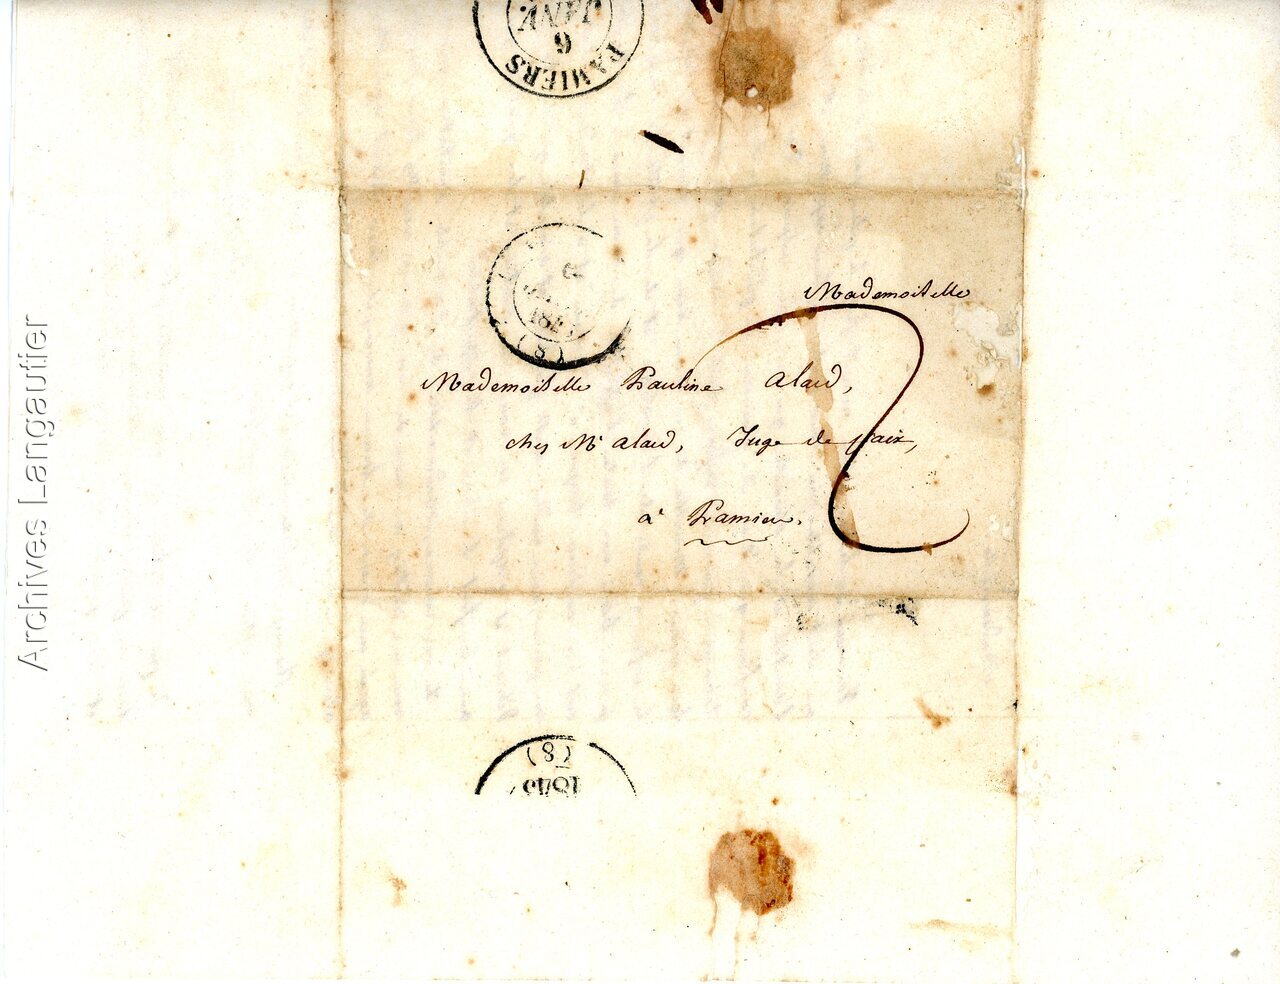 PAMIERS
6
JANV.
Mademoiselle
(8)
Mademoiselle Pauline Alard,
chez Mr Alard, Juge de paix,
2
à Pamiers.
(8)
1845
Archives Langautier